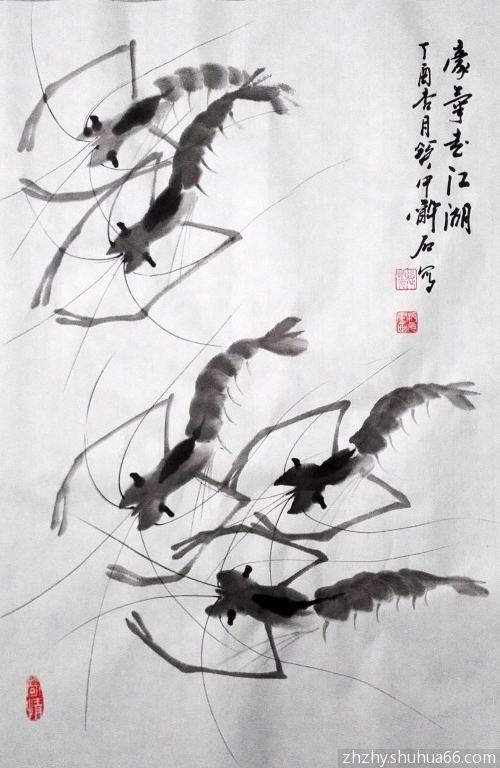 豪氣走江湖
丁酉杏月 甲 石写
寄情
zhzhyshuhua66.com